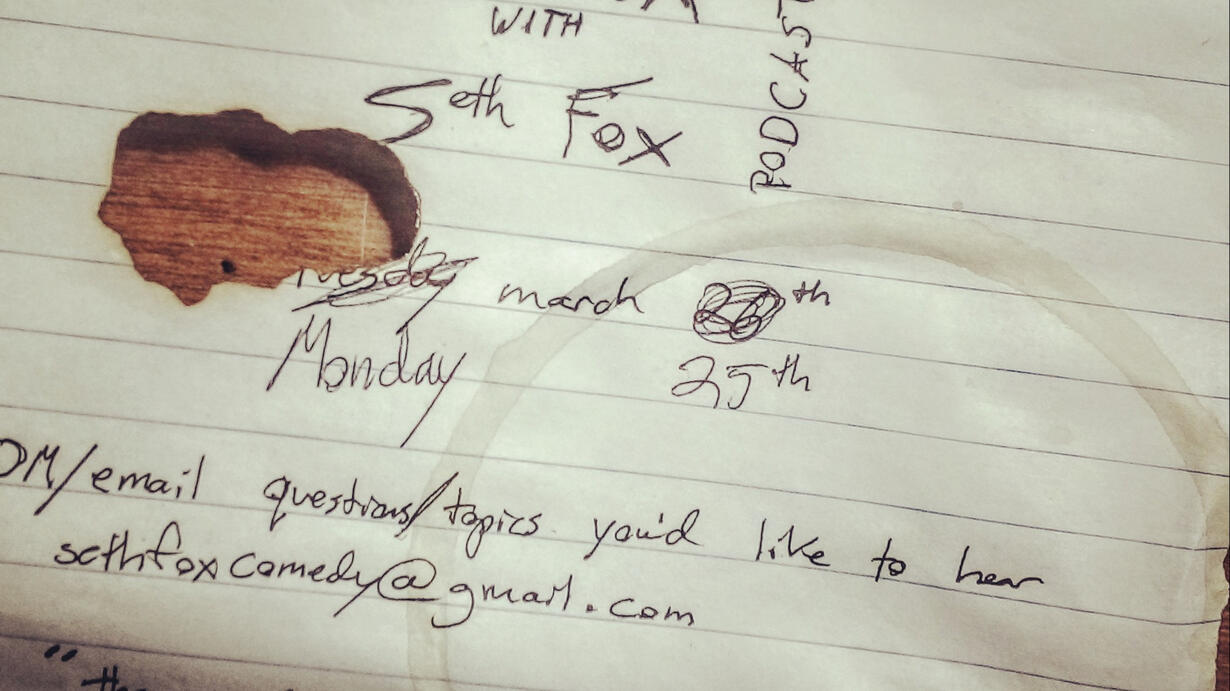 WITH
Seth Fox
PODCAST
Tuesday march th
Monday 25th
DM/email questions/topics you'd like to hear
sethfoxcomedy@gmail.com